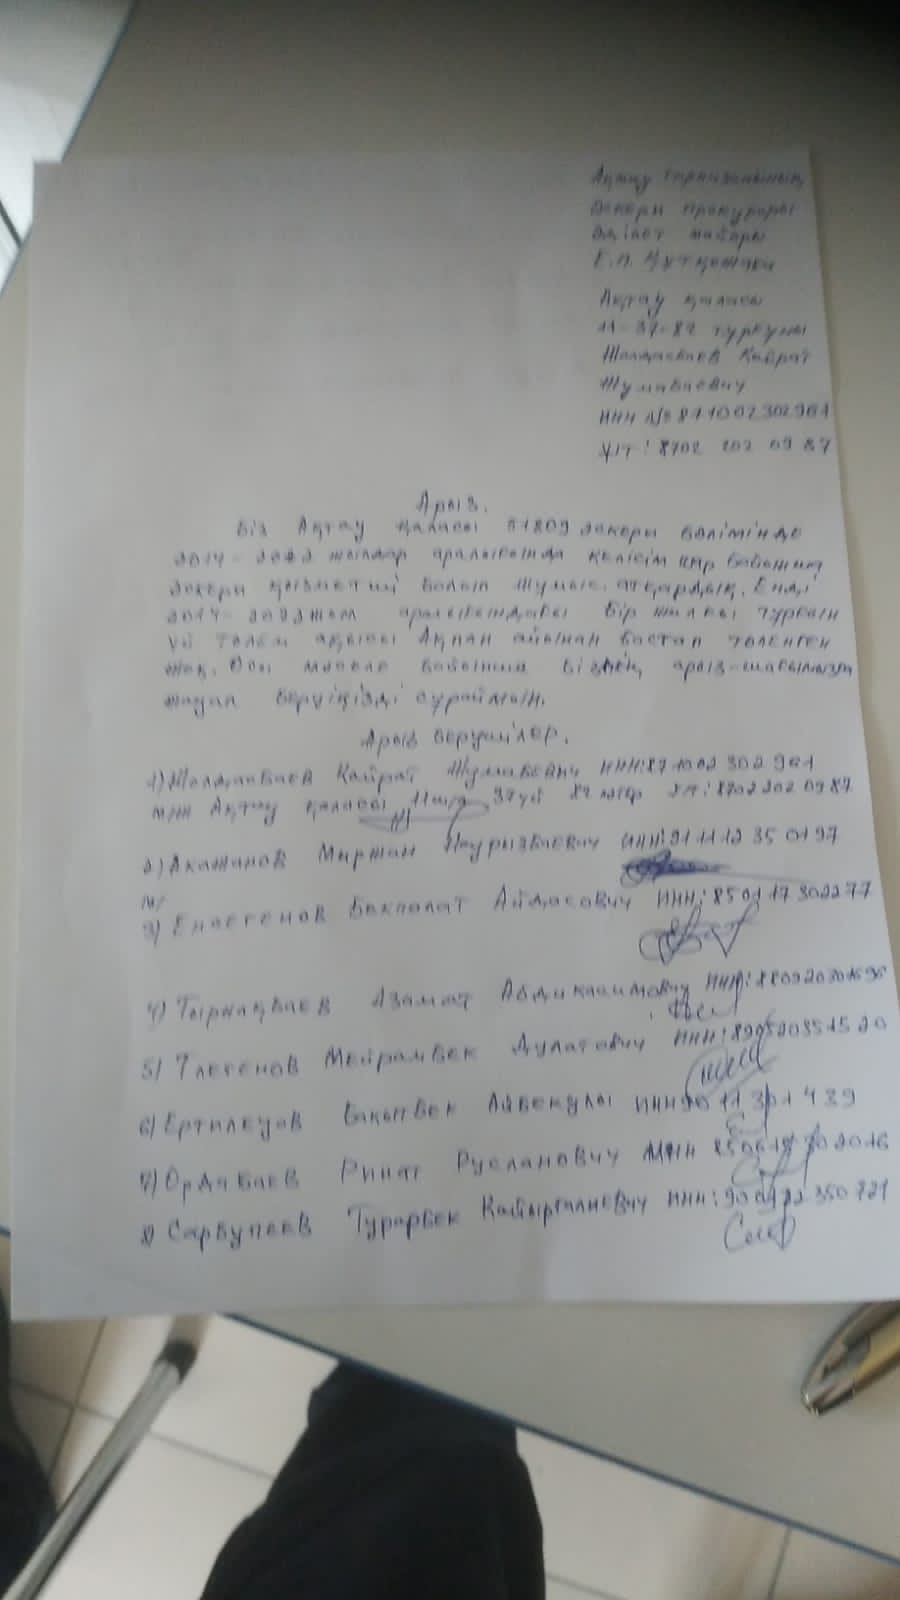 Ақтау гарнизонының
әскери прокуроры
әділет майоры
Ақтау қаласы
11-37-82 тұрғыны
Жолдасбаев Кайрат
Жумабаевич
ИИН № 871002302961
ұ/т: 8702 202 09 87
Арыз.
Біз Ақтау қаласы 51809 әскери бөлімінде
2017-2022 жылдар аралығында келісім шар бойынша
әскери қызметші болып жұмыс атқардық. Енді
2017-2022 жыл аралығындағы бір жылғы тұрғын
үй төлем ақысы Ақпан айынан бастап төленген
жоқ. Осы мәселе бойынша біздің арыз-шағымызға
жауап беруіңізді сұраймын.
Арыз берушілер.
1) Жолдасбаев Кайрат Жумабаевич ИИН: 871002 302 961
м/ж Ақтау қаласы 11 ш/а 37 үй 82 пәтер ұ/т: 8702 202 09 87
2) Акажанов Миржан Наурызбаевич ИИН: 911112 35 0197
3) Енсегенов Бекполат Айдасович ИИН: 850117302277
4) Тырнақбаев Азамат Абдикасимович ИИН:
5) Тлегенов Мейрамбек Дулатович ИИН: 890520351520
6) Ертилеуов Бакытбек Айбекулы ИИН
7) Ордабаев Ринат Русланович ИИН
8) Сарбупеев Турарбек Кайыргалиевич ИИН: 900122 350 721